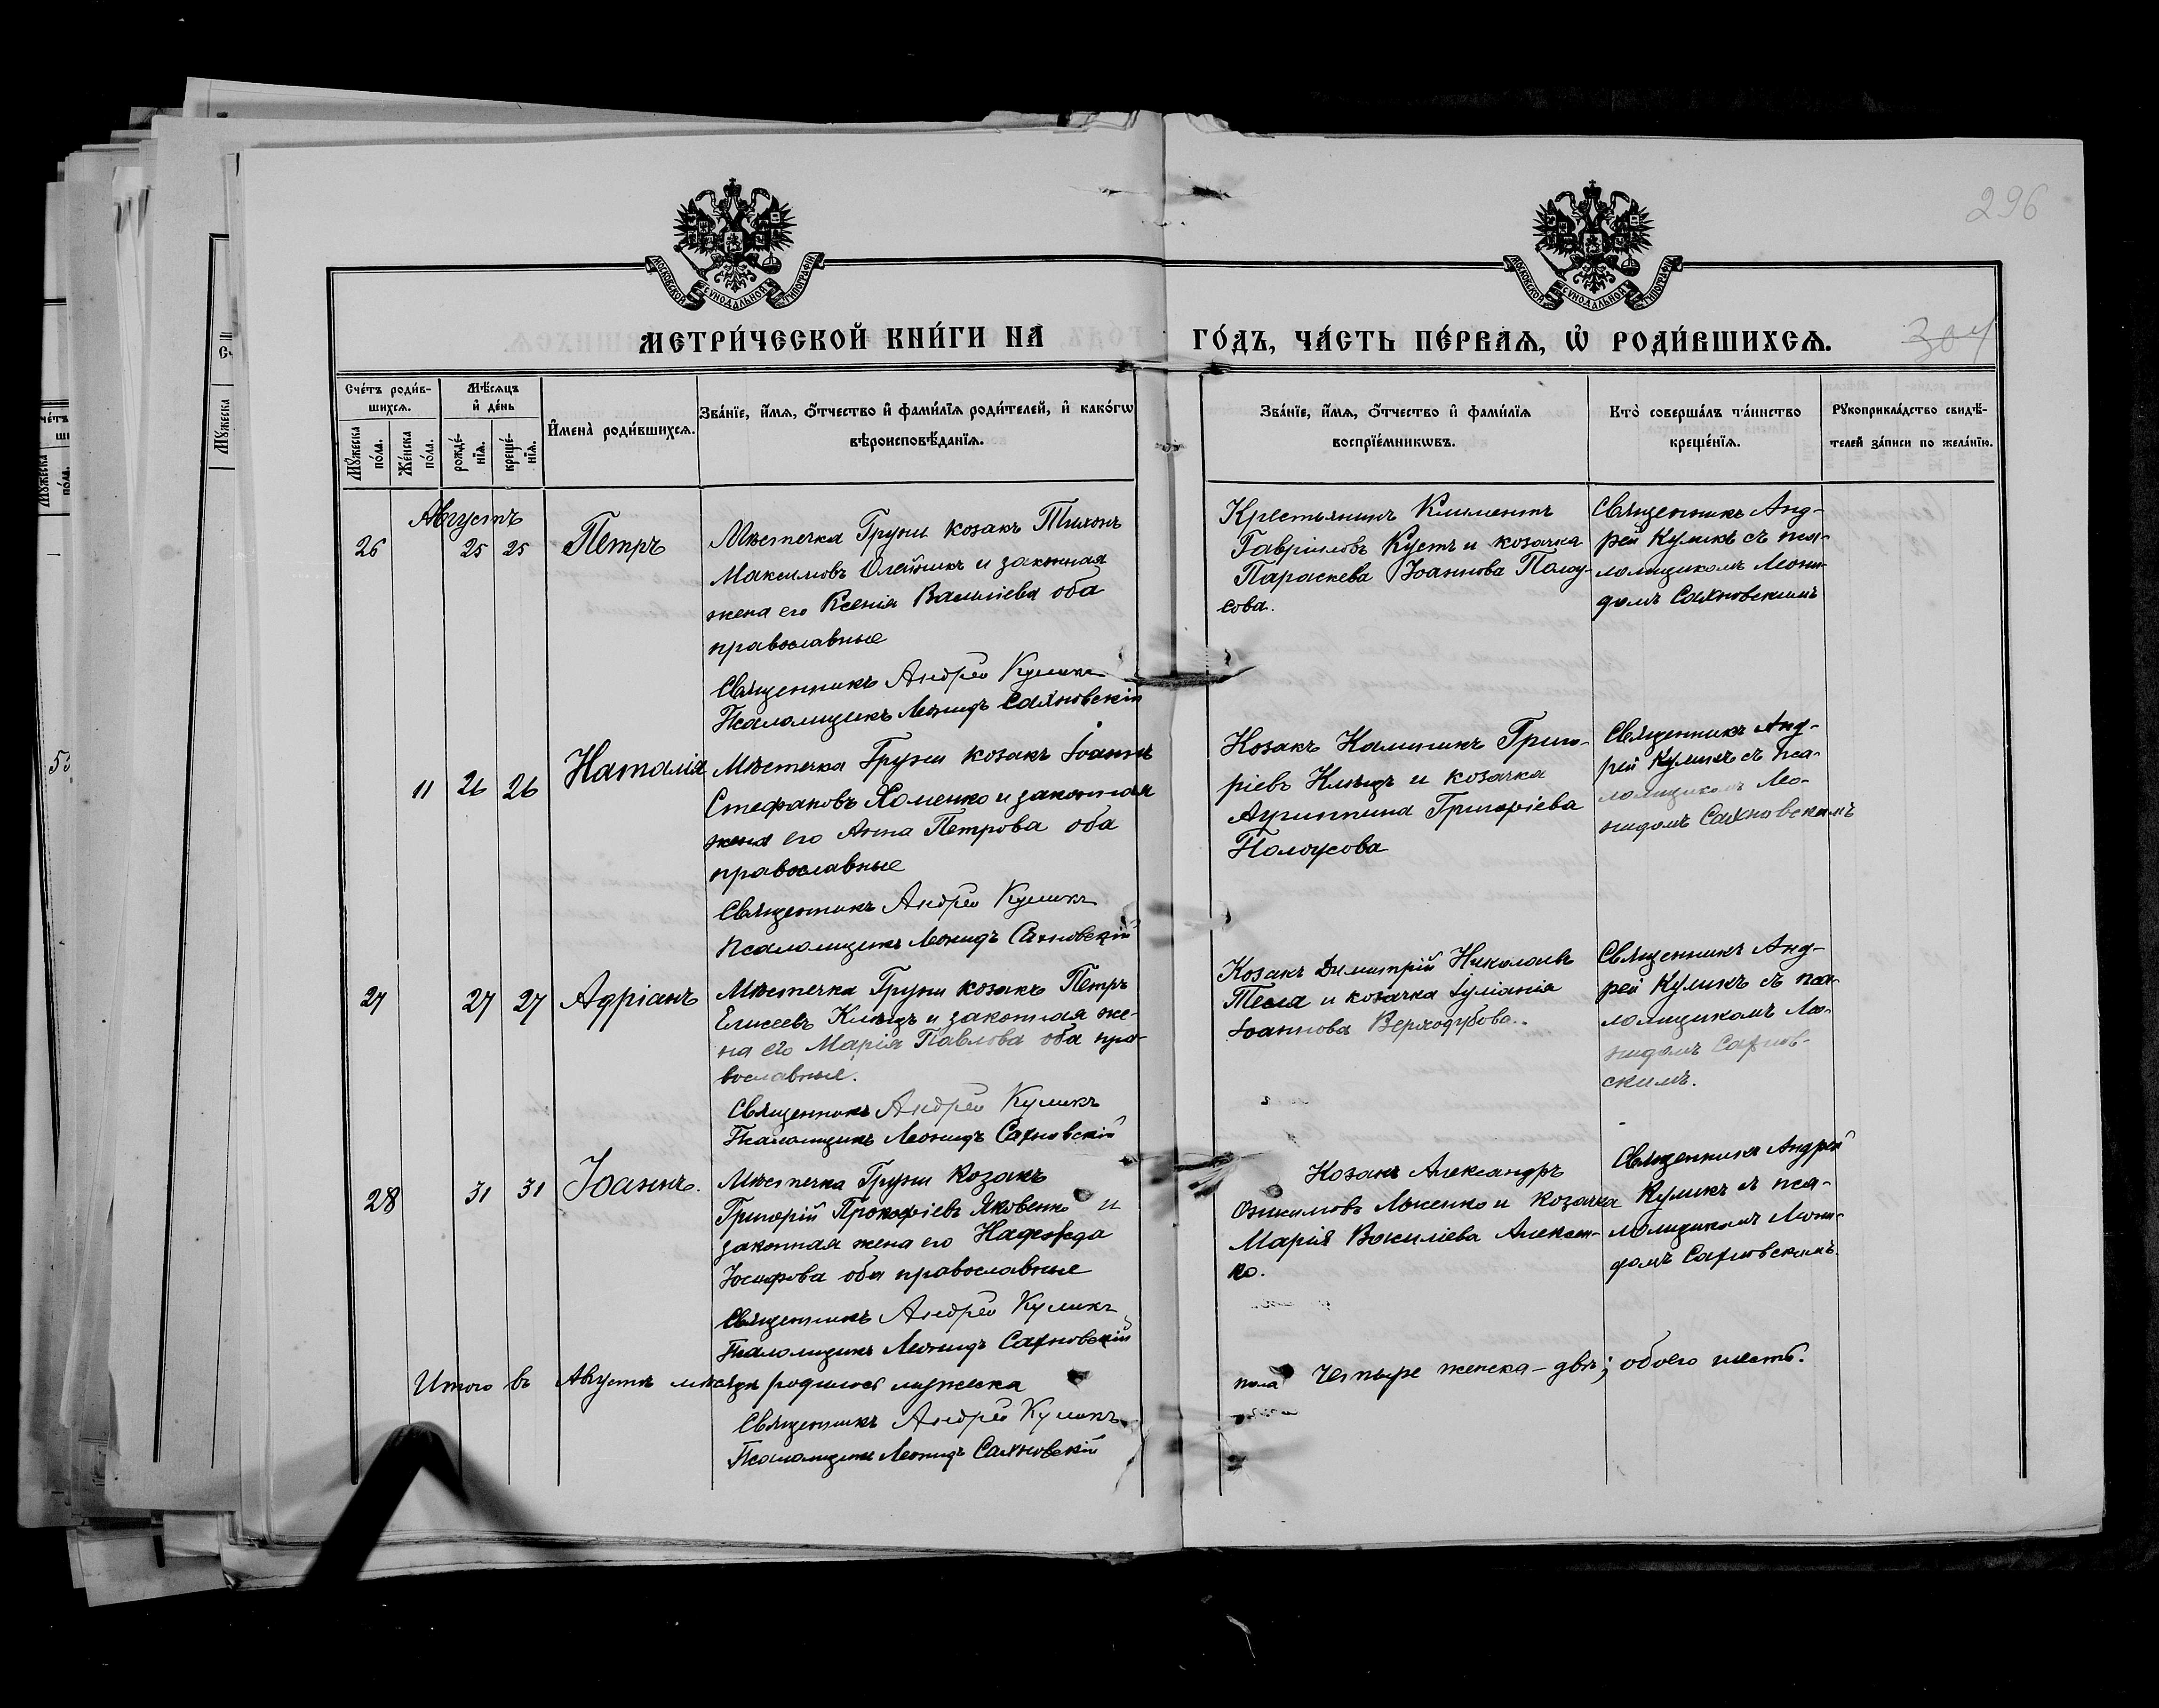 296
МОСКОВСКОЙ СѴНОДАЛЬНОЙ ТИПОГРАФІИ
МОСКОВСКОЙ СѴНОДАЛЬНОЙ ТИПОГРАФІИ
МЕТРИ́ЧЕСКОЙ КНИ́ГИ НА
ГО́ДЪ, ЧА́СТЬ ПЕ́РВАѦ, Ѡ҆ РОДИ́ВШИХСѦ.
304
Сче́тъ роди́в-
шихсѧ.
Мѣ́сѧцъ
и҆ де́нь
Мꙋ́жеска
по́ла.
Же́нска
по́ла.
рожде́-
нїѧ.
креще́-
нїѧ.
И҆мена̀ роди́вшихсѧ.
Зва́нїе, и҆́мѧ, ѻ҆́тчество и҆ фами́лїѧ роди́телей, и҆ како́гѡ
вѣроисповѣ́данїѧ.
Зва́нїе, и҆́мѧ, ѻ҆́тчество и҆ фами́лїѧ
воспрїе́мникѡвъ.
Кто̀ соверша́лъ та́инство
креще́нїѧ.
Рꙋкоприкла́дство свидѣ́-
телей за́писи по жела́нїю.
Августъ
26 25 25 Петръ
Мѣстечка Груни козакъ Тихонъ
Максимовъ Олейникъ и законная
жена его Ксенія Василіева оба
православные
Священникъ Андрей Куликъ
Псаломщикъ Леонидъ Сахновскій
Крестьянинъ Климентъ
Гавріиловъ Кустъ и козачка
Параскева Іоаннова Полоу-
сова.
Священникъ Анд-
рей Куликъ съ пса-
ломщикомъ Леони-
домъ Сахновскимъ
11 26 26 Наталія
Мѣстечка Груни козакъ Іоаннъ
Стефановъ Хоменко и законная
жена его Анна Петрова оба
православные
Священникъ Андрей Куликъ
Псаломщикъ Леонидъ Сахновскій
Козакъ Калиникъ Григо-
ріевъ Клѣцъ и козачка
Агриппина Григоріева
Полоусова
Священникъ Анд-
рей Куликъ съ пса-
ломщикомъ Лео-
нидомъ Сахновскимъ
27 27 27 Адріанъ
Мѣстечка Груни козакъ Петръ
Елисеевъ Клѣцъ и законная же-
на его Марія Павлова оба пра-
вославные.
Священникъ Андрей Куликъ
Псаломщикъ Леонидъ Сахновскій
Козакъ Димитрій Николаевъ
Тесля и козачка Іуліанія
Іоаннова Верходубова.
Священникъ Анд-
рей Куликъ съ пса-
ломщикомъ Лео-
нидомъ Сахнов-
скимъ.
28 31 31 Іоаннъ.
Мѣстечка Груни козакъ
Григорій Прокофіевъ Яковенко и
законная жена его Надежда
Іосифова оба православные
Священникъ Андрей Куликъ
Псаломщикъ Леонидъ Сахновскій
Козакъ Александръ
Онисимовъ Лысенко и козачка
Марія Василіева Алексен-
ко.
Священникъ Андрей
Куликъ съ пса-
ломщикомъ Леони-
домъ Сахновскимъ.
Итого въ Августѣ мѣсяцѣ родилось мужеска
пола четыре женска - двѣ; обоего шесть.
Священникъ Андрей Куликъ
Псаломщикъ Леонидъ Сахновскій